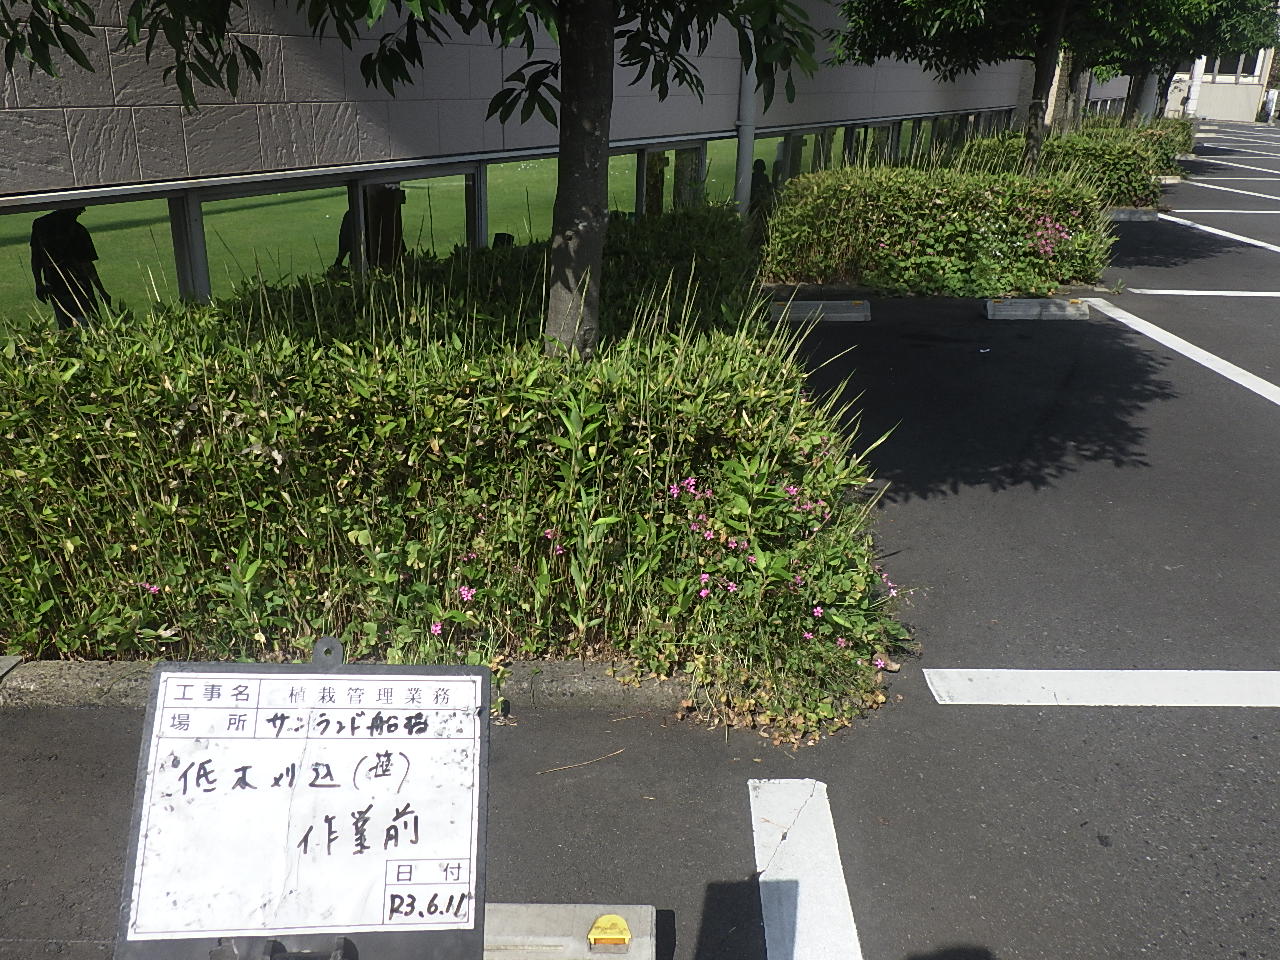 工事名 植栽管理業務
場所 サンランド船橋
低木刈込(笹)
作業前
日付
R3.6.11